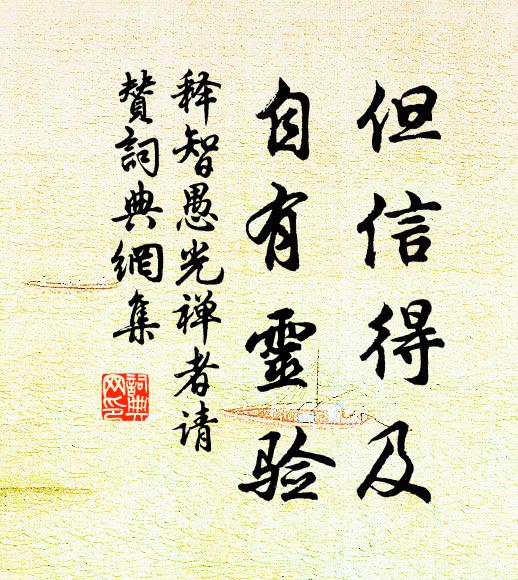 但信得及
自有靈验
释智愚光禅者请
赞詞典網集
詞典
网印